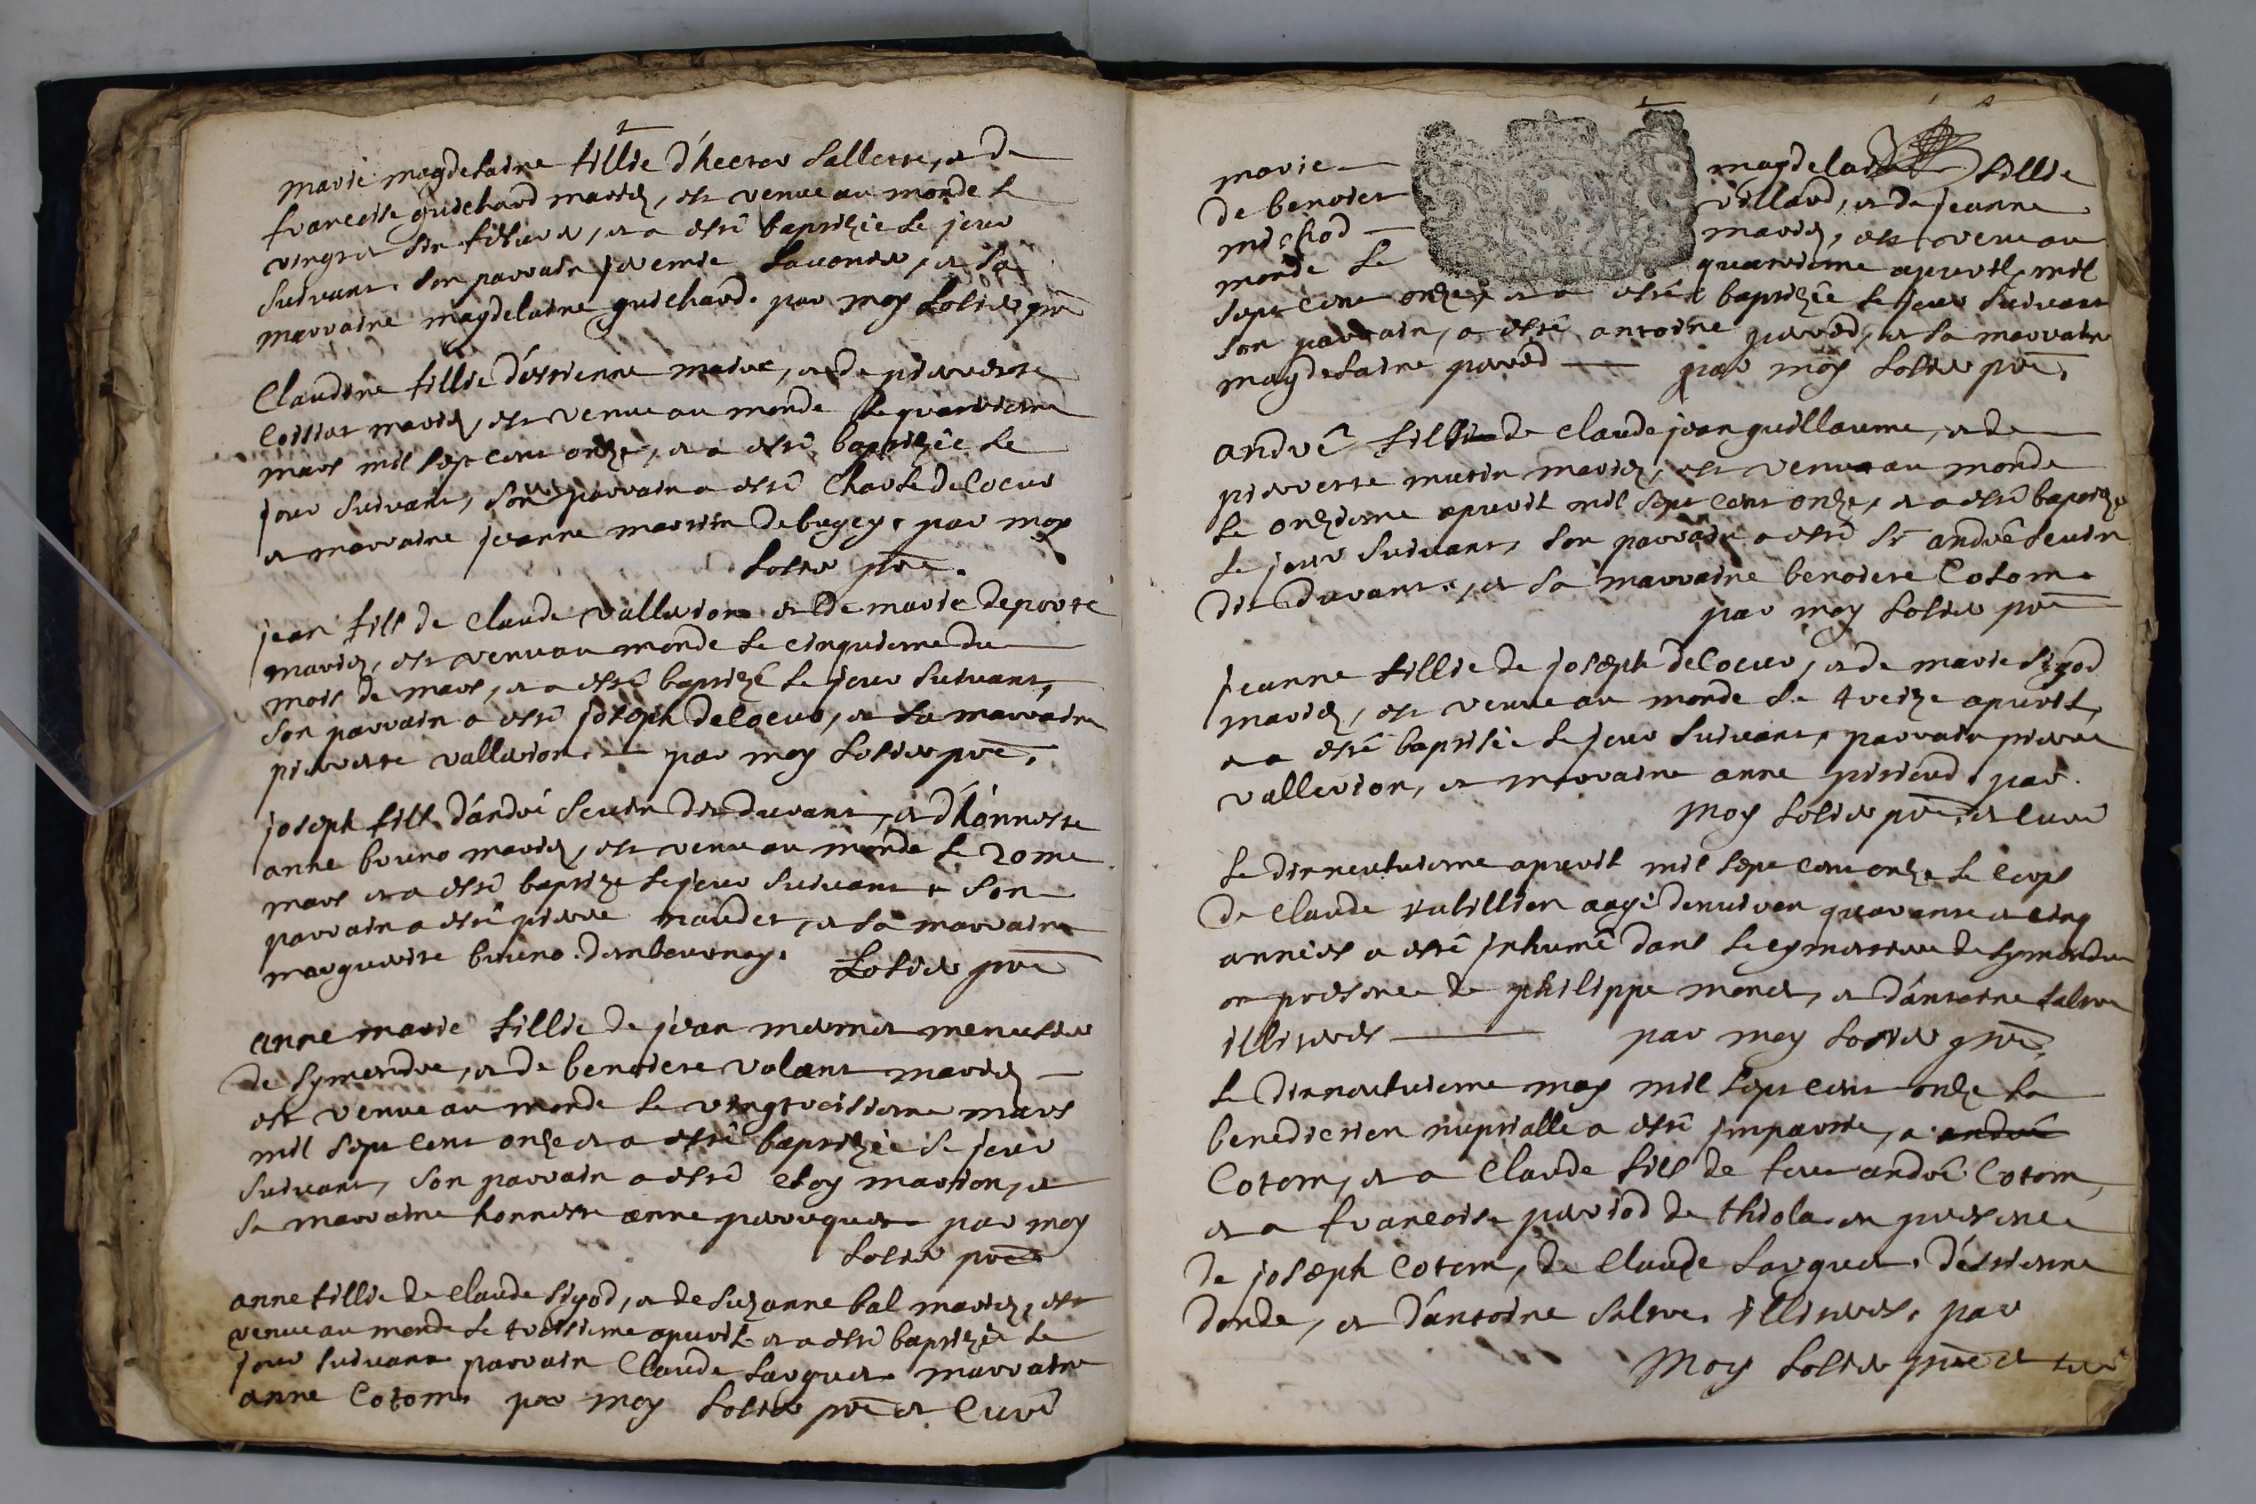 marie magdelaine fillie d'hector Sallette, et de
francoise guichard mariez, est venue au monde le
vingt et six fevrier, et a esté baptizée le jour
suivant. son parrain jeremie, et la
marraine magdelaine guichard. par moy Sotier pre
Claudine fillie d'estienne maire, et de pierrette
mariez, est venue au monde le quatrieme
mars mil sept cent onze, et a esté baptizée le
jour suivant, son parrain a esté Charle delocur
et marraine jeanne martin de bugey. par moy
Sotier pre.
jean fils de Claude vallerion et de marie deporte
mariez, est venu au monde le cinquieme du
mois de mars, et a esté baptizé le jour suivant,
son parrain a esté joseph delocur, et sa marraine
pierrette vallerion. par moy Sotier pre.
joseph fils d'andré seuin dit durant, et d'honneste
anne bruno mariez, est venu au monde le 20me
mars et a esté baptizé le jour suivant. son
parrain a esté pierre naudet, et sa marraine
marguerite bruno. d'ambournay. Sotier pre
anne marie fillie de jean mermet menusier
de Symandre, et de benoiste volant mariez
est venue au monde le vingtroisieme mars
mil sept cent onze et a esté baptizée le jour
suivant, son parrain a esté eloy marion, et
sa marraine honneste anne peruquet. par moy
Sotier pre
anne fillie de claude sigod, et de suzanne bal mariez, est
venue au monde le troisieme apuril et a esté baptizée le
jour suivant parrain Claude Larguet. marraine
anne Cotom. par moy Sotier pre et Curé
marie magdelaine fillie
de benoiet villard, et de jeanne
michod mariez, est venue au
monde le quatrieme apuril, mil
sept cent onze, et a esté baptizée le jour suivant
son parrain, a esté antoine perod, et sa marraine
magdelaine perod par moy Sotier pre.
andré fils de claude jean guillaume, et de
pierrette mutin mariez, est venu au monde
le onzieme apuril mil sept cent onze, et a esté baptizé
le jour suivant, son parrain a esté Sr andré seuin
dit durant., et sa marraine benoiste Cotom.
par moy Sotier pre
jeanne fillie de joseph delocur, et de marie sigod
mariez, est venue au monde le treize apuril,
et a esté baptisée le jour suivant, parrain pierre
vallerion, et marraine anne pirioud. par
moy Sotier pre. et Curé
le dixneufuieme apuril mil sept cent onze le corps
de claude rubillion aagé denuiron quarante et cinq
années a esté jnhumé dans le cymetiere de symandre
en presence de philippe monet, et d'antoine salme
illiterés par moy Sotier pre.
le dixneufuieme may mil sept cent onze la
benediction nuptialle a esté jmpartie, a andré
Cotom, et a Claude fils de feu andré Cotom,
et a francoise period de thiola en presence
de joseph Cotom, de Claude Larguet. d'estienne
donde, et d'antoine salme. illiterés. par
Moy Sotier pre et curé